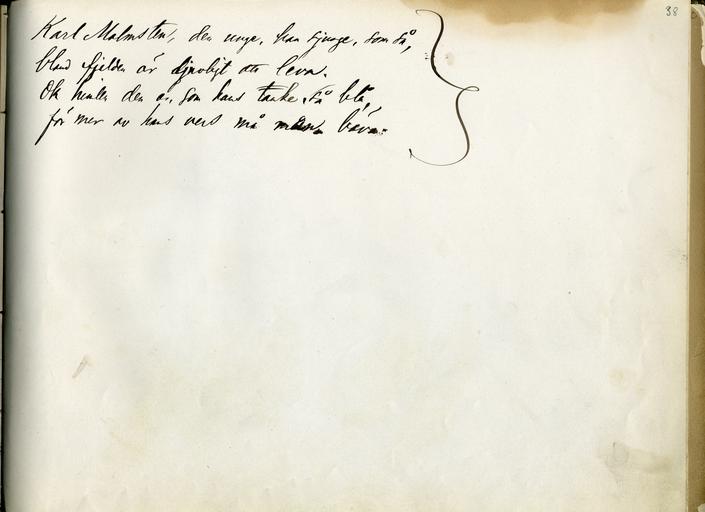 38
Karl Malmsten, den unge, han sjunge, som så,
bland fjelden är ljuvligt att leva.
Ok himlen den är, som hans tanke, så blå,
för mer av hans vers må man bäva.